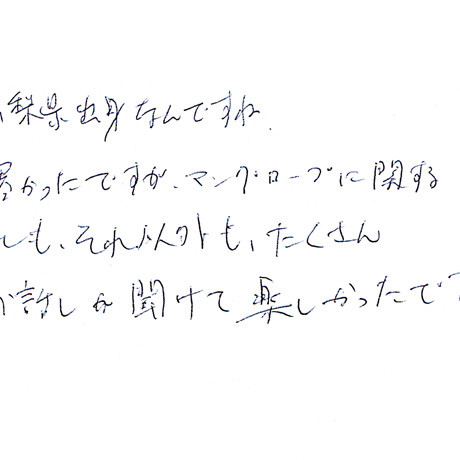 梨県出身なんですね.
暑かったですが、マングローブに関する
も、それ以外も、たくさん
お話しが聞けて楽しかったで